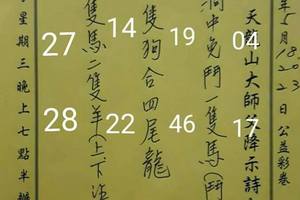 年5月18 20 23日公益彩卷
山大師父降示詩
中兔鬥一隻馬(鬥
隻狗合四尾龍
隻馬二隻羊(上下
星期三晚上七點半辦
27 14 19 04
28 22 46 17